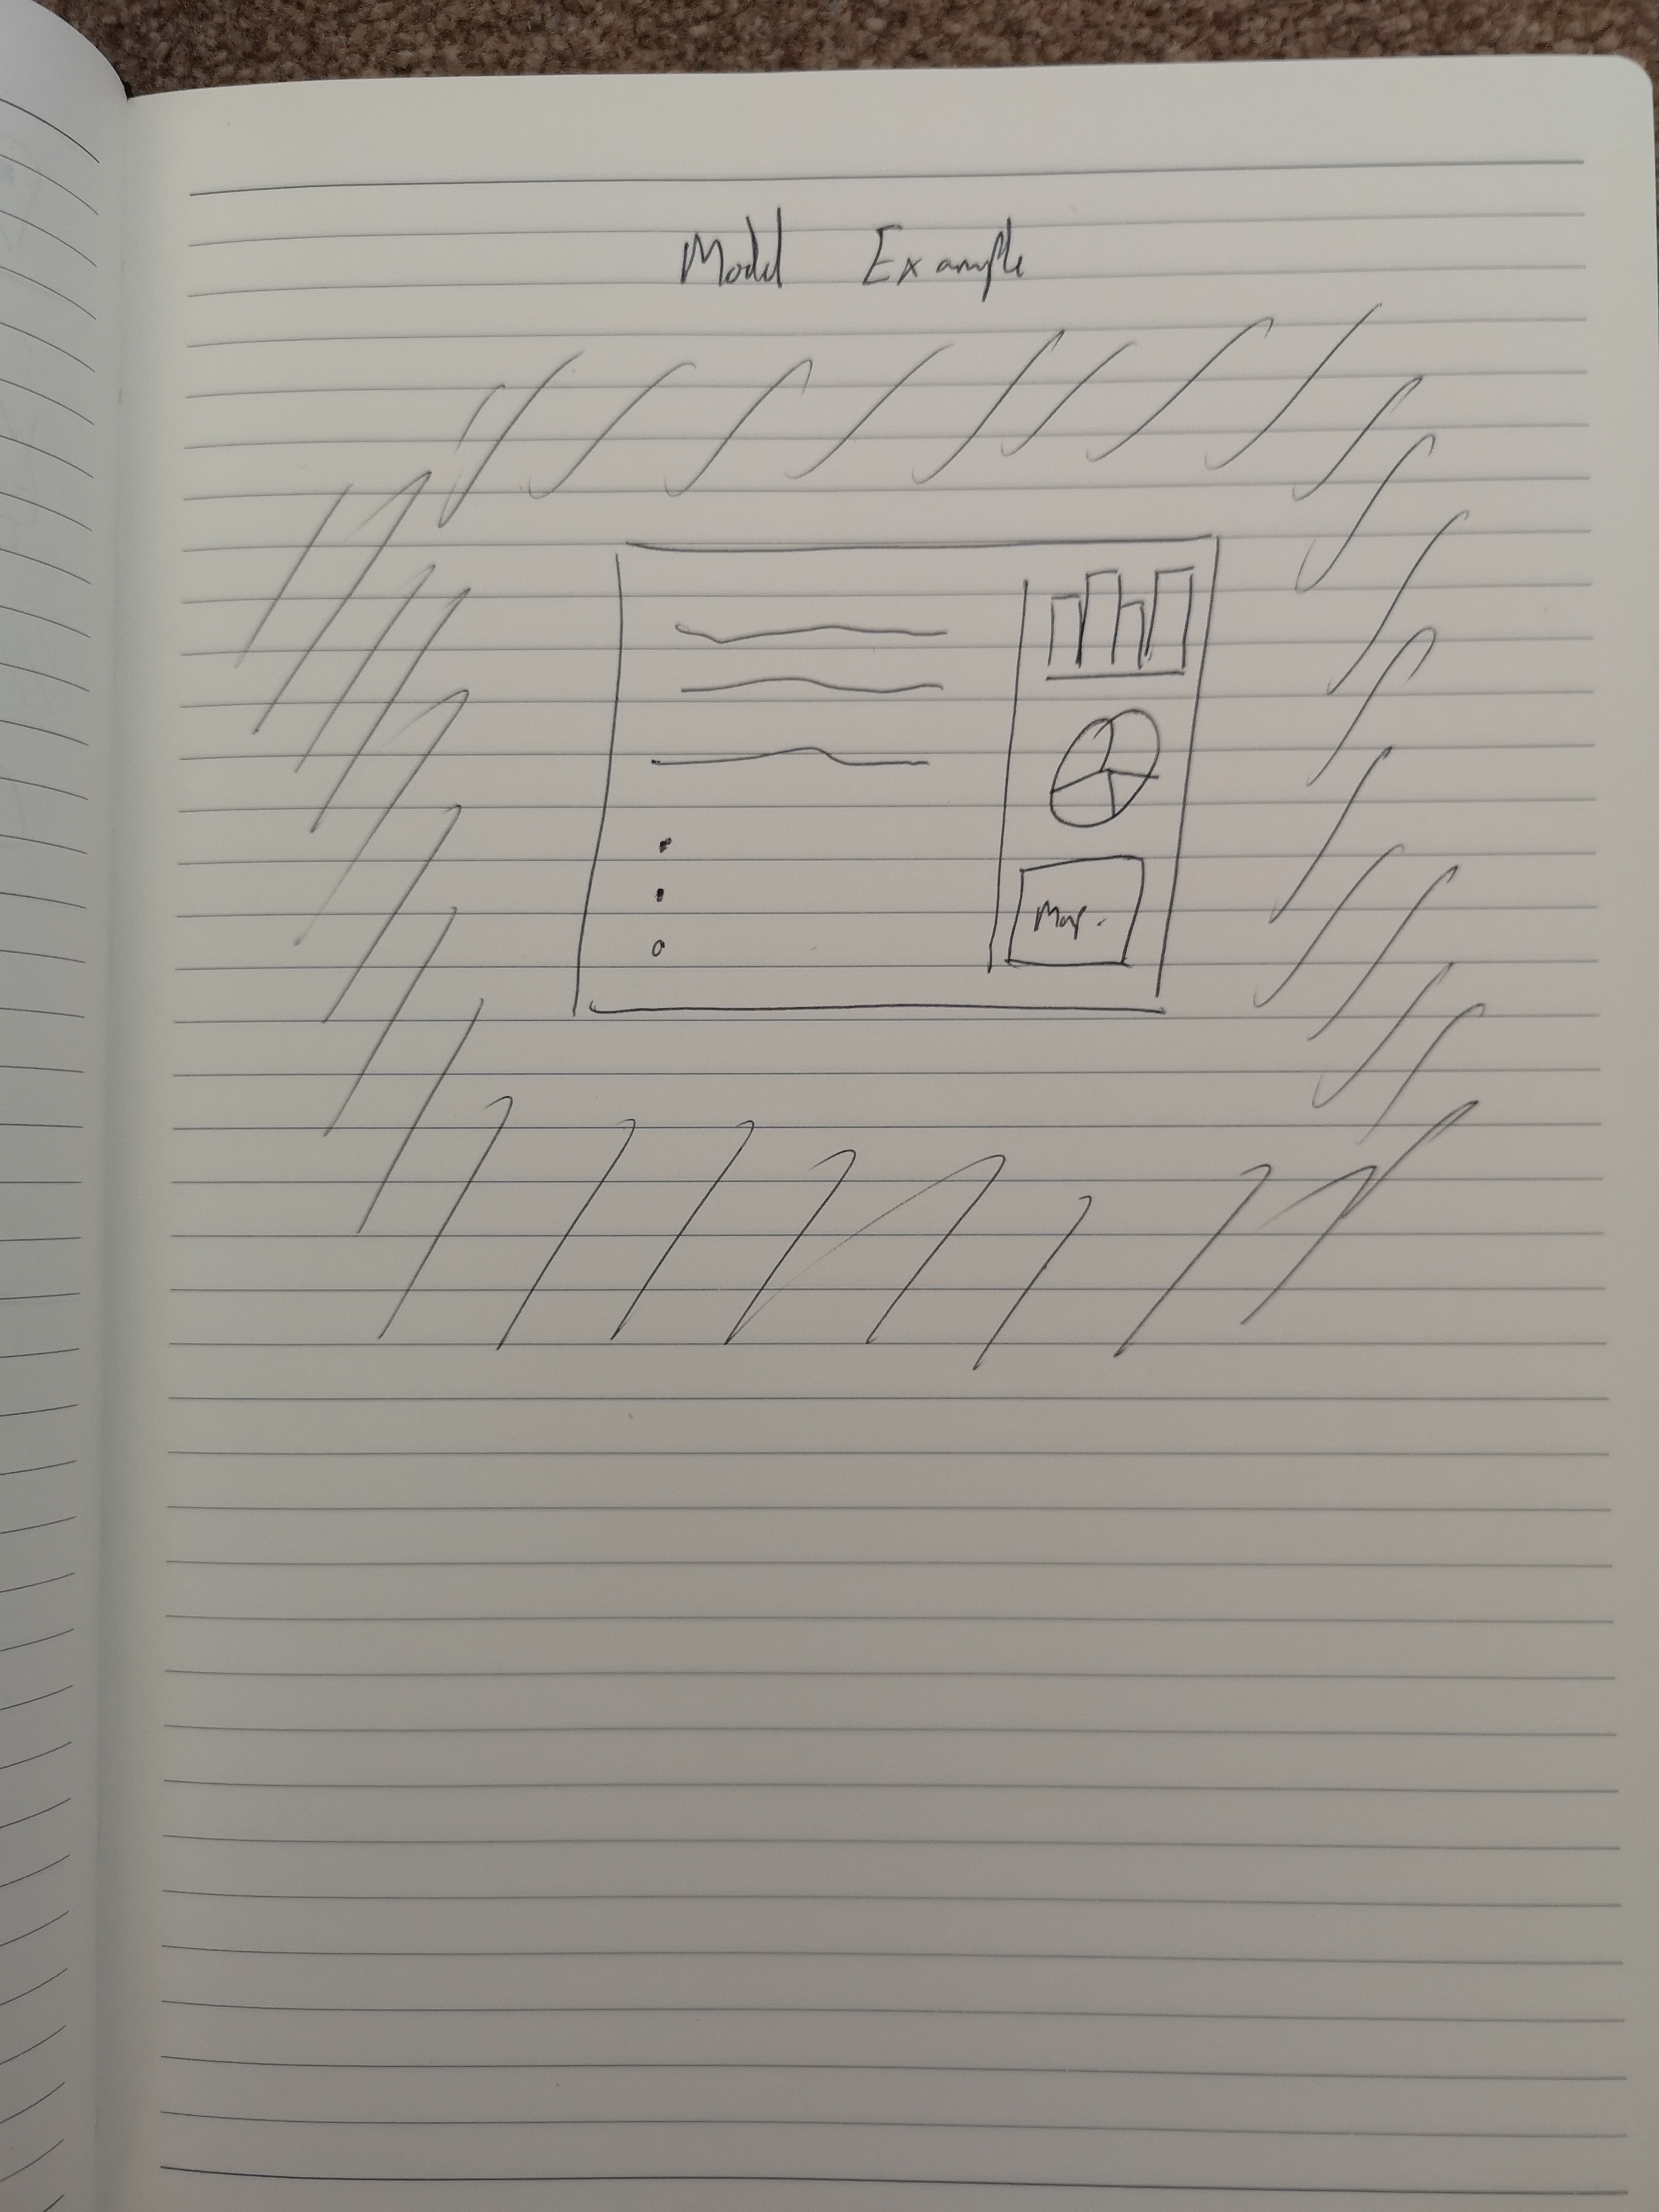 Model Example
Map.